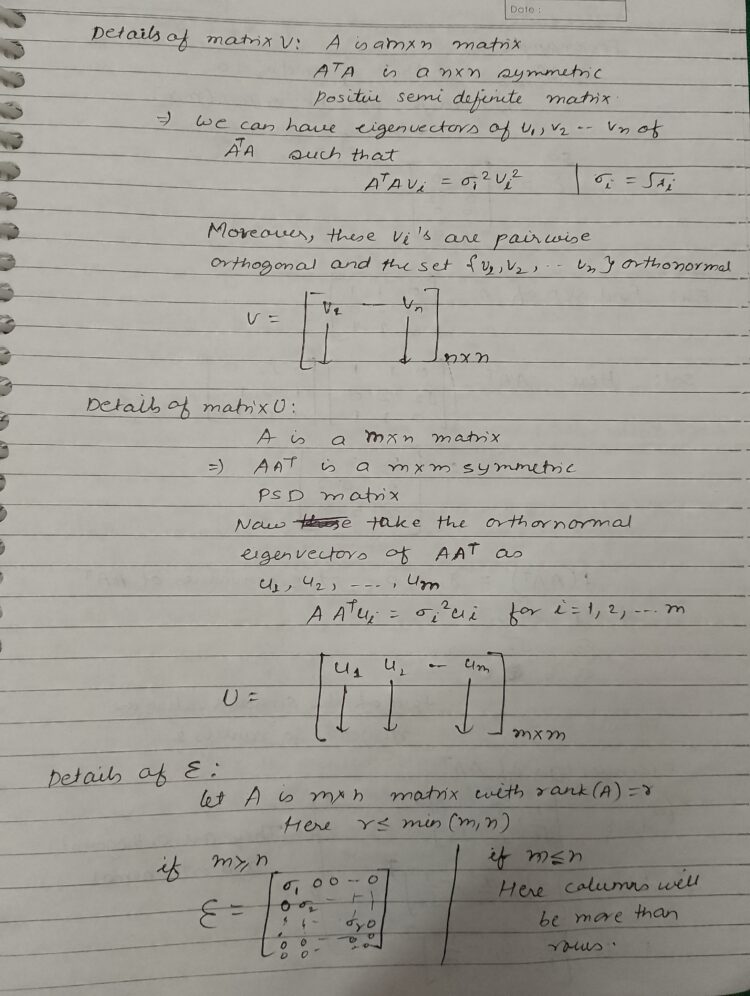 Date :
Details of matrix V: A is a mxn matrix
AᵀA is a nxn symmetric
positive semi definite matrix.
⇒ we can have eigenvectors of v₁, v₂ -- vₙ of
AᵀA such that
AᵀA vᵢ = σᵢ² vᵢ² | σᵢ = √λᵢ
Moreover, these vᵢ's are pairwise
orthogonal and the set {v₁, v₂, -- vₙ} orthonormal
V = [v₁ --- vₙ] nxn
Details of matrix U:
A is a mxn matrix
⇒ AAᵀ is a mxm symmetric
PSD matrix
Now take the orthornormal
eigenvectors of AAᵀ as
u₁, u₂, ----, uₘ
A Aᵀuᵢ = σᵢ²uᵢ for i = 1, 2, --- m
U = [u₁ u₂ -- uₘ] mxm
Details of Ɛ:
let A is mxn matrix with rank(A) = r
Here r ≤ min(m,n)
if m ≥ n | if m ≤ n
Ɛ = [σ₁ 0 0 -- 0
0 σ₂ - - -
σᵣ 0
0 0 -- 0 0
0 0 -- 0 0]
Here columns will
be more than
rows.